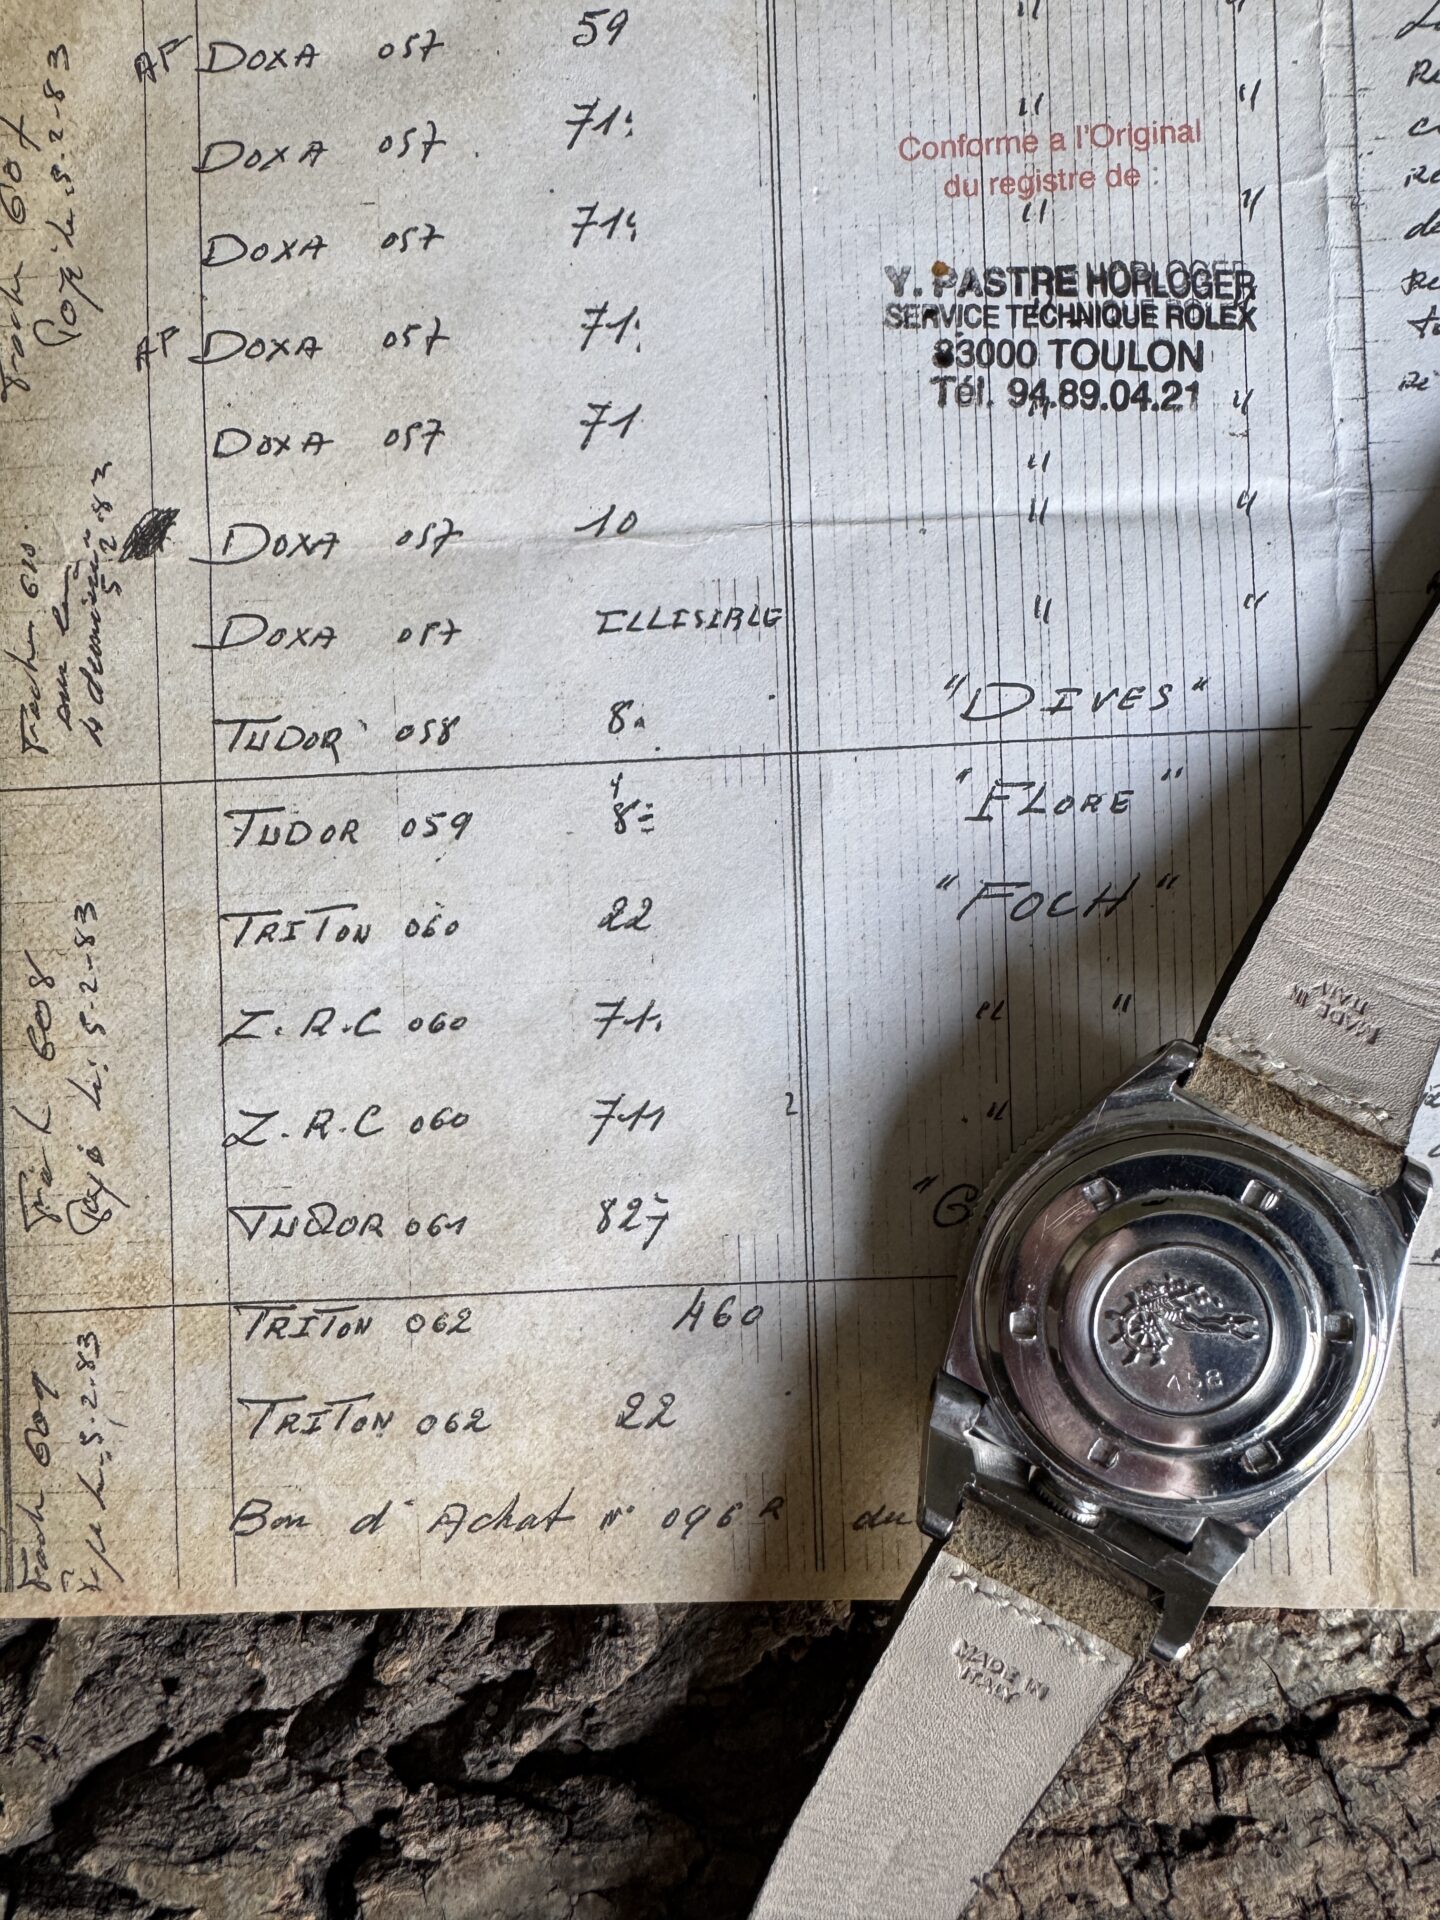 AP DOXA 057 59 " "
DOXA 057 71 " "
DOXA 057 71 " "
AP DOXA 057 71
DOXA 057 71 " "
"
DOXA 057 10 " "
DOXA 057 ILLISIBLE " "
TUDOR 058 8 "DIVES"
TUDOR 059 8 "FLORE"
TRITON 060 22 "FOCH"
Z.R.C 060 71 " "
Z.R.C 060 711 2 "
TUDOR 061 827 "G
TRITON 062 460
TRITON 062 22
Bon d'Achat n° 096 R du
Conforme a l'Original
du registre de :
Y. PASTRE HORLOGER
SERVICE TECHNIQUE ROLEX
83000 TOULON
Tél. 94.89.04.21
5-2-83
610
5.2.83
608
5-2-83
609
5.2.83
MADE IN
ITALY
458
MADE IN
ITALY